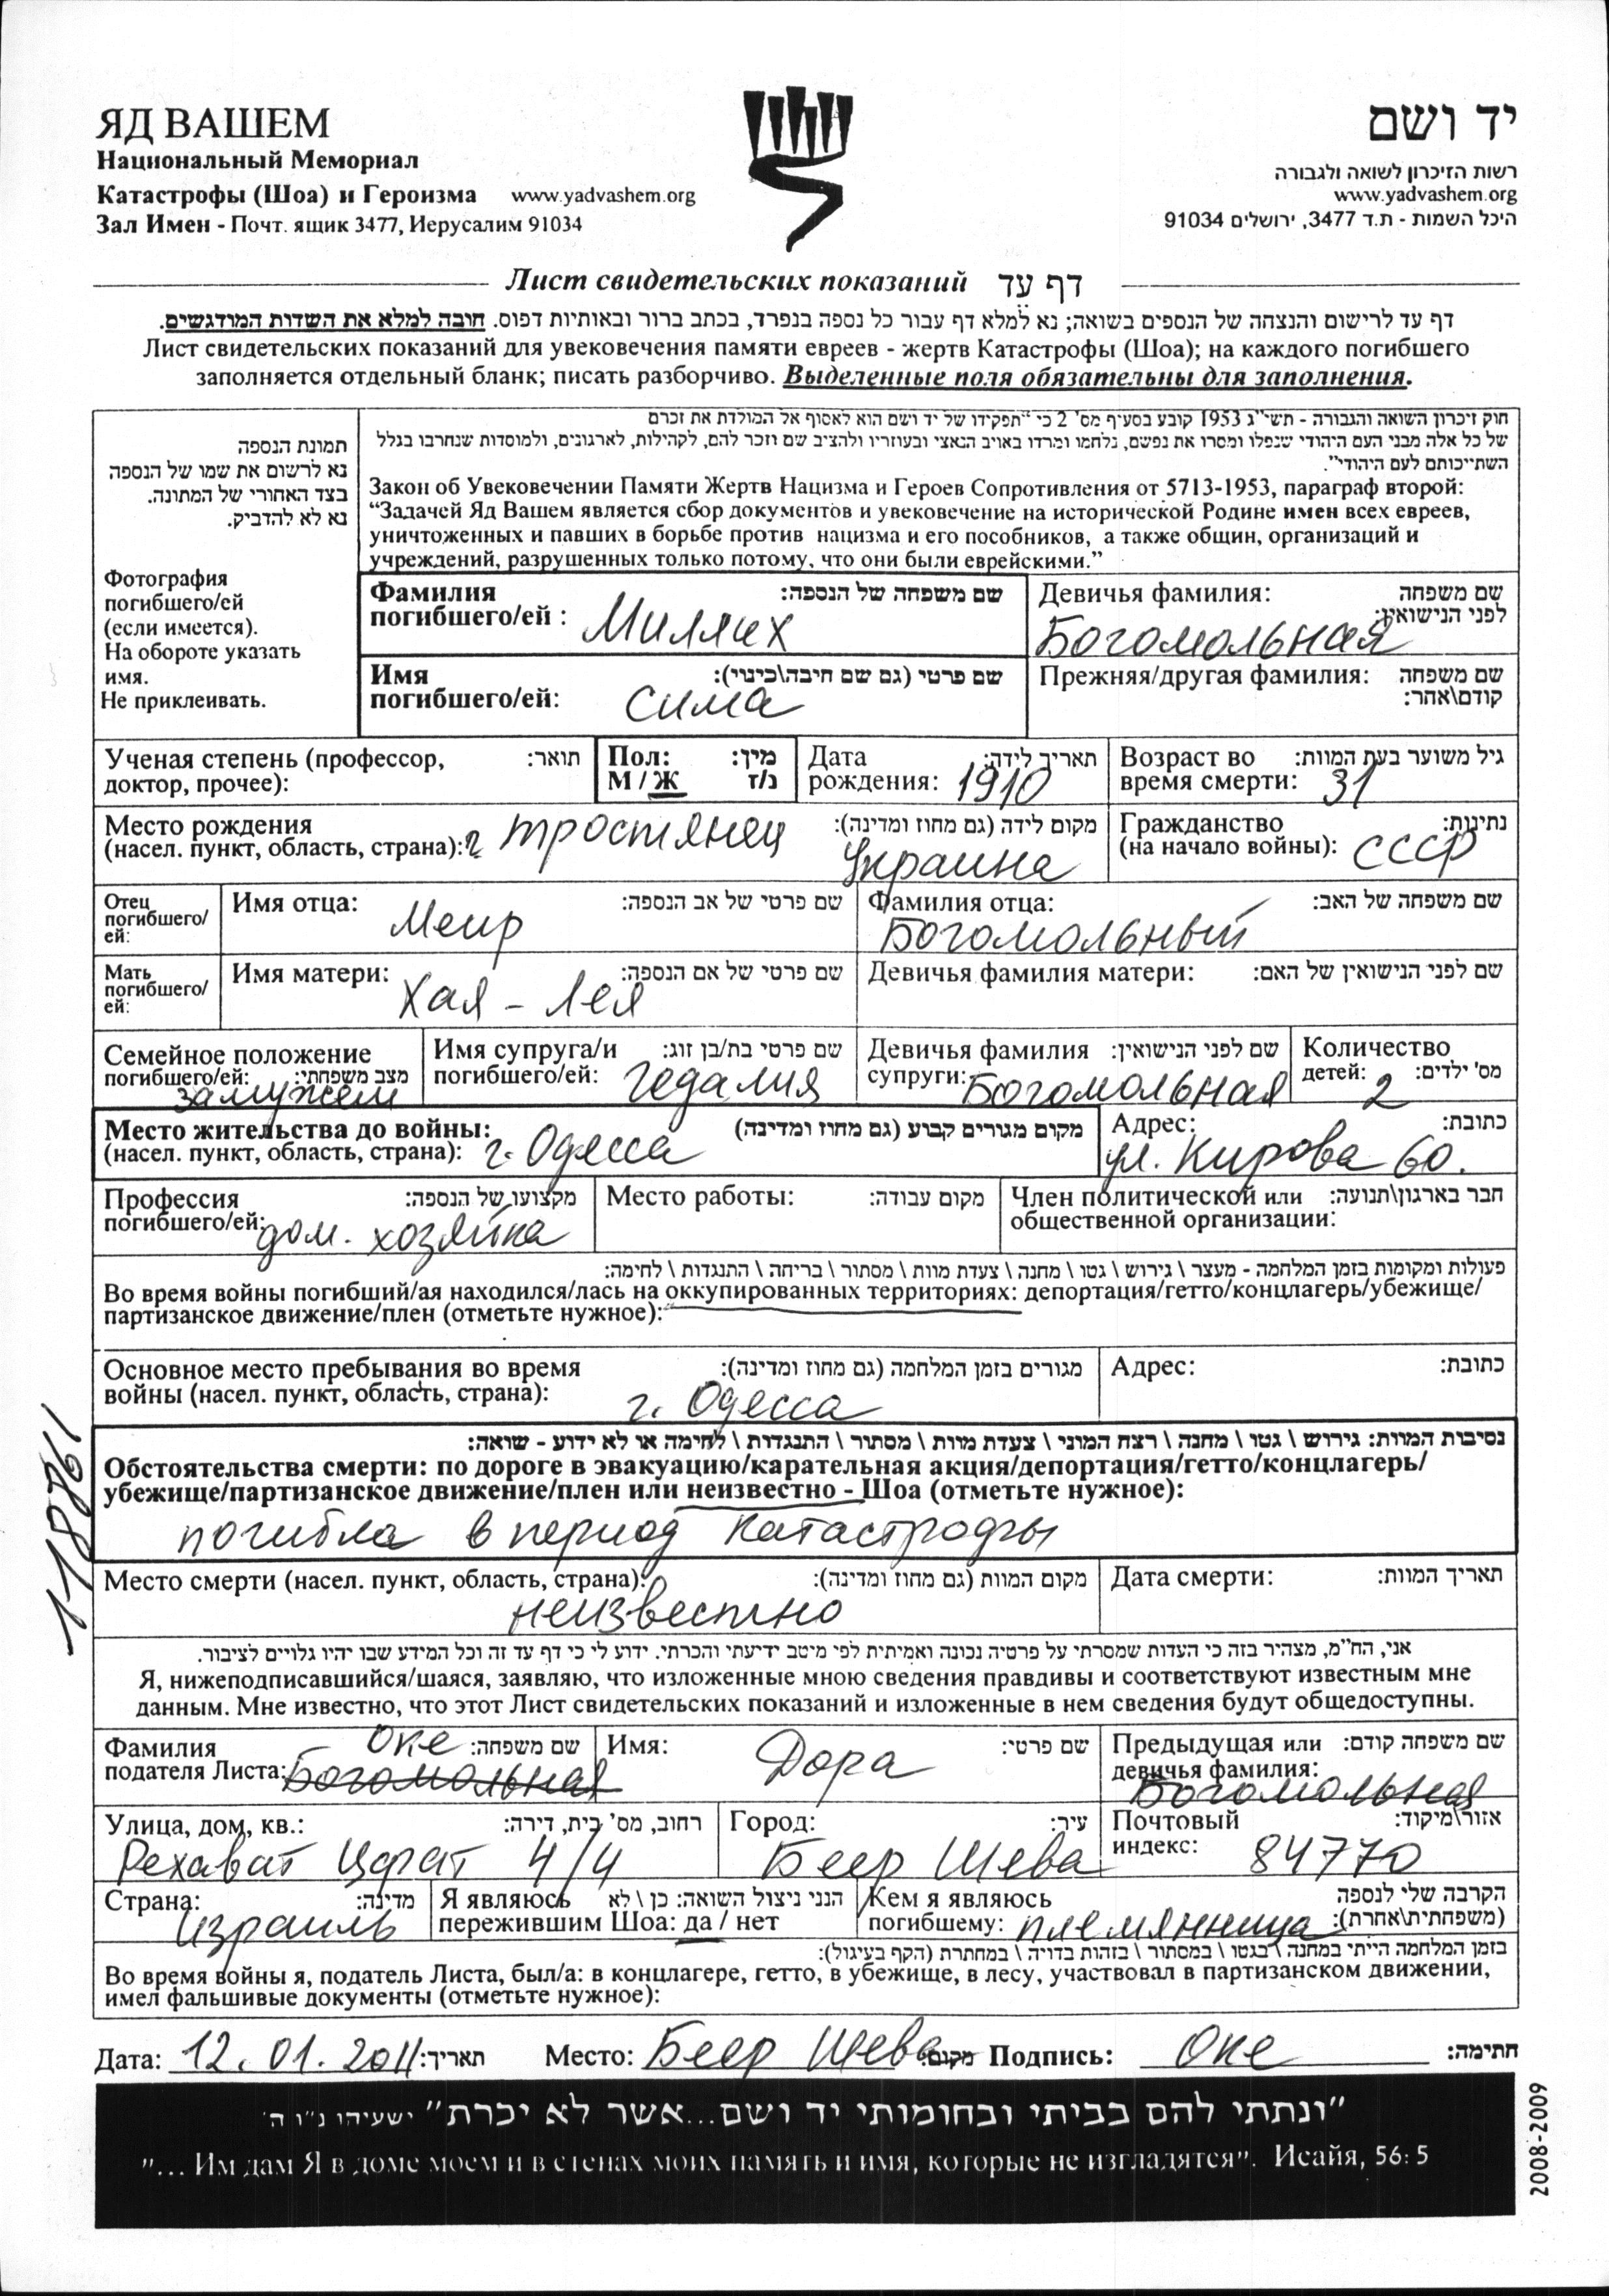 ЯД ВАШЕМ
יד ושם
Национальный Мемориал
Катастрофы (Шоа) и Героизма www.yadvashem.org
Зал Имен - Почт. ящик 3477, Иерусалим 91034
רשות הזיכרון לשואה ולגבורה
www.yadvashem.org
היכל השמות - ת.ד 3477, ירושלים 91034
Лист свидетельских показаний דף עד
דף עד לרישום והנצחה של הנספים בשואה; נא למלא דף עבור כל נספה בנפרד, בכתב ברור ובאותיות דפוס. חובה למלא את השדות המודגשים.
Лист свидетельских показаний для увековечения памяти евреев - жертв Катастрофы (Шоа); на каждого погибшего
заполняется отдельный бланк; писать разборчиво. Выделенные поля обязательны для заполнения.
תמונת הנספה
נא לרשום את שמו של הנספה
בצד האחורי של המתונה.
נא לא להדביק.
Фотография
погибшего/ей
(если имеется).
На обороте указать
имя.
Не приклеивать.
חוק זיכרון השואה והגבורה - תשי"ג 1953 קובע בסעיף מס' 2 כי "תפקידו של יד ושם הוא לאסוף אל המולדת את זכרם
של כל אלה מבני העם היהודי שנפלו ומסרו את נפשם, נלחמו ומרדו באויב הנאצי ובעוזריו ולהציב שם וזכר להם, לקהילות, לארגונים, ולמוסדות שנחרבו בגלל
השתייכותם לעם היהודי".
Закон об Увековечении Памяти Жертв Нацизма и Героев Сопротивления от 5713-1953, параграф второй:
“Задачей Яд Вашем является сбор документов и увековечение на исторической Родине имен всех евреев,
уничтоженных и павших в борьбе против нацизма и его пособников, а также общин, организаций и
учреждений, разрушенных только потому, что они были еврейскими.”
Фамилия שם משפחה של הנספה:
погибшего/ей : Миллих
Девичья фамилия: שם משפחה
לפני הנישואין:
Богомольная
Имя שם פרטי (גם שם חיבה\כינוי):
погибшего/ей: Сима
Прежняя/другая фамилия: שם משפחה
קודם\אחר:
Ученая степень (профессор, תואר:
доктор, прочее):
Пол: מין:
М / Ж נ/ז
Дата תאריך לידה:
рождения: 1910
Возраст во גיל משוער בעת המוות:
время смерти: 31
Место рождения מקום לידה (גם מחוז ומדינה):
(насел. пункт, область, страна): г. Тростянец
Украина
Гражданство נתינות:
(на начало войны): СССР
Отец
погибшего/
ей:
Имя отца: שם פרטי של אב הנספה:
Меир
Фамилия отца: שם משפחה של האב:
Богомольный
Мать
погибшего/
ей:
Имя матери: שם פרטי של אם הנספה:
Хая - Лея
Девичья фамилия матери: שם לפני הנישואין של האם:
Семейное положение
погибшего/ей: מצב משפחתי:
замужем
Имя супруга/и שם פרטי בת/בן זוג:
погибшего/ей: Гедалия
Девичья фамилия שם לפני הנישואין:
супруги: Богомольная
Количество
детей: מס' ילדים:
2
Место жительства до войны: מקום מגורים קבוע (גם מחוז ומדינה)
(насел. пункт, область, страна): г. Одесса
Адрес: כתובת:
ул. Кирова 60.
Профессия מקצועו של הנספה:
погибшего/ей: дом. хозяйка
Место работы: מקום עבודה:
Член политической или חבר בארגון\תנועה:
общественной организации:
פעולות ומקומות בזמן המלחמה - מעצר \ גירוש \ גטו \ מחנה \ צעדת מוות \ מסתור \ בריחה \ התנגדות \ לחימה:
Во время войны погибший/ая находился/лась на оккупированных территориях: депортация/гетто/концлагерь/убежище/
партизанское движение/плен (отметьте нужное):
Основное место пребывания во время מגורים בזמן המלחמה (גם מחוז ומדינה):
войны (насел. пункт, область, страна): г. Одесса
Адрес: כתובת:
נסיבות המוות: גירוש \ גטו \ מחנה \ רצח המוני \ צעדת מוות \ מסתור \ התנגדות \ לחימה או לא ידוע - שואה:
Обстоятельства смерти: по дороге в эвакуацию/карательная акция/депортация/гетто/концлагерь/
убежище/партизанское движение/плен или неизвестно - Шоа (отметьте нужное):
погибла в период катастрофы
118861
Место смерти (насел. пункт, область, страна): מקום המוות (גם מחוז ומדינה):
неизвестно
Дата смерти: תאריך המוות:
אני, הח"מ, מצהיר בזה כי העדות שמסרתי על פרטיה נכונה ואמיתית לפי מיטב ידיעתי והכרתי. ידוע לי כי דף עד זה וכל המידע שבו יהיו גלויים לציבור.
Я, нижеподписавшийся/шаяся, заявляю, что изложенные мною сведения правдивы и соответствуют известным мне
данным. Мне известно, что этот Лист свидетельских показаний и изложенные в нем сведения будут общедоступны.
Фамилия Оке שם משפחה:
подателя Листа: Богомольная
Имя: Дора שם פרטי:
Предыдущая или שם משפחה קודם:
девичья фамилия:
Богомольная
Улица, дом, кв.: רחוב, מס' בית, דירה:
Рехават Цфат 4/4
Город: עיר:
Беер Шева
Почтовый אזור\מיקוד:
индекс: 84770
Страна: מדינה:
Израиль
Я являюсь הנני ניצול השואה: כן \ לא
пережившим Шоа: да / нет
Кем я являюсь הקרבה שלי לנספה
погибшему: племянница (משפחתית\אחרת):
בזמן המלחמה הייתי במחנה \ בגטו \ במסתור \ בזהות בדויה \ במחתרת (הקף בעיגול):
Во время войны я, податель Листа, был/а: в концлагере, гетто, в убежище, в лесу, участвовал в партизанском движении,
имел фальшивые документы (отметьте нужное):
Дата: 12.01.2011 תאריך: Место: Беер Шева מקום: Подпись: Оке חתימה:
"ונתתי להם בביתי ובחומותי יד ושם...אשר לא יכרת" ישעיהו נ"ו ה'
"... Им дам Я в доме моем и в стенах моих память и имя, которые не изгладятся". Исайя, 56: 5
2008-2009